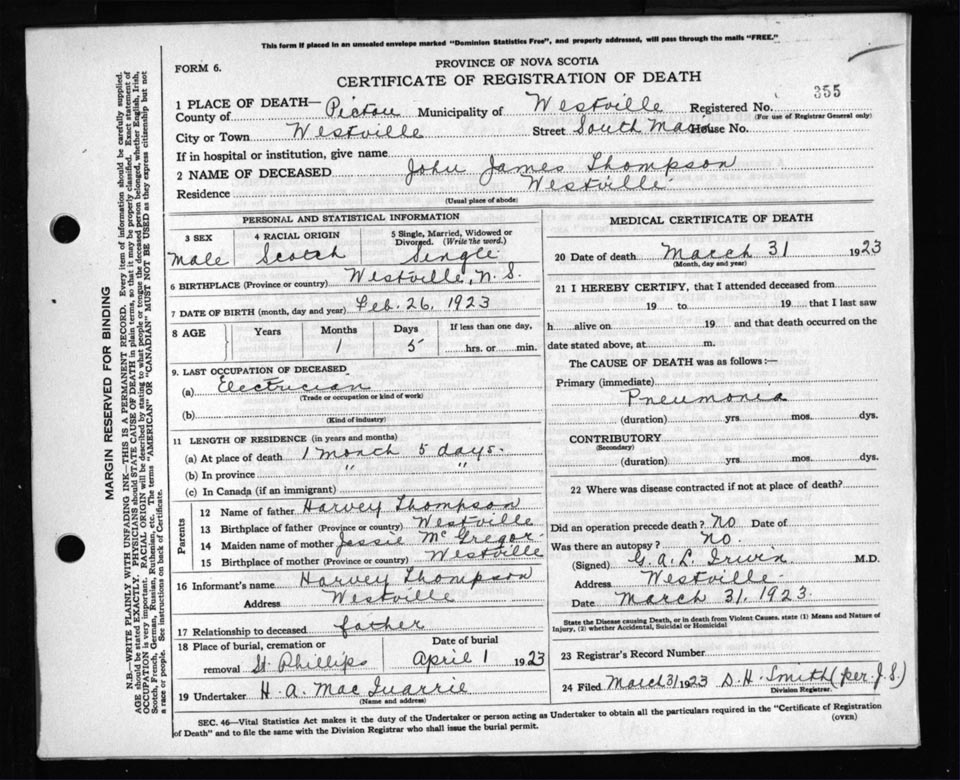 This form if placed in an unsealed envelope marked "Dominion Statistics Free", and properly addressed, will pass through the mails "FREE."
FORM 6.
PROVINCE OF NOVA SCOTIA
CERTIFICATE OF REGISTRATION OF DEATH
1 PLACE OF DEATH—
County of Pictou Municipality of Westville Registered No. 355
(For use of Registrar General only)
City or Town Westville Street South Main House No.
If in hospital or institution, give name
2 NAME OF DECEASED John James Thompson
Residence Westville
(Usual place of abode)
PERSONAL AND STATISTICAL INFORMATION
3 SEX
Male
4 RACIAL ORIGIN
Scotch
5 Single, Married, Widowed or Divorced. (Write the word.)
Single
6 BIRTHPLACE (Province or country) Westville, N. S.
7 DATE OF BIRTH (month, day and year) Feb. 26, 1923
8 AGE Years Months Days If less than one day,
1 5 hrs. or min.
9. LAST OCCUPATION OF DECEASED
(a) Electrician
(Trade or occupation or kind of work)
(b)
(Kind of industry)
11 LENGTH OF RESIDENCE (in years and months)
(a) At place of death 1 month 5 days.
(b) In province " "
(c) In Canada (if an immigrant)
Parents
12 Name of father Harvey Thompson
13 Birthplace of father (Province or country) Westville
14 Maiden name of mother Jessie McGregor
15 Birthplace of mother (Province or country) Westville
16 Informant's name Harvey Thompson
Address Westville
17 Relationship to deceased father
18 Place of burial, cremation or Date of burial
removal St. Phillips April 1 1923
19 Undertaker H. A. MacQuarrie
(Name and address)
MEDICAL CERTIFICATE OF DEATH
20 Date of death March 31 1923
(Month, day and year)
21 I HEREBY CERTIFY, that I attended deceased from
19 to 19 that I last saw
h alive on 19 and that death occurred on the
date stated above, at m.
The CAUSE OF DEATH was as follows:—
Primary (immediate)
Pneumonia
(duration) yrs mos. dys.
CONTRIBUTORY
(Secondary)
(duration) yrs. mos. dys.
22 Where was disease contracted if not at place of death?
Did an operation precede death? No Date of
Was there an autopsy? No.
(Signed) G. A. L. Irwin M.D.
Address Westville
Date March 31, 1923.
State the Disease causing Death, or in death from Violent Causes, state (1) Means and Nature of
Injury, (2) whether Accidental, Suicidal or Homicidal
23 Registrar's Record Number
24 Filed March 31 1923 D. H. Smith (per J. S.)
Division Registrar.
SEC. 46—Vital Statistics Act makes it the duty of the Undertaker or person acting as Undertaker to obtain all the particulars required in the "Certificate of Registration
of Death" and to file the same with the Division Registrar who shall issue the burial permit.
(OVER)
MARGIN RESERVED FOR BINDING
N.B.—WRITE PLAINLY WITH UNFADING INK—THIS IS A PERMANENT RECORD. Every item of information should be carefully supplied.
AGE should be stated EXACTLY. PHYSICIANS should STATE CAUSE OF DEATH in plain terms, so that it may be properly classified. Exact statement of
OCCUPATION is very important. RACIAL ORIGIN will be described by stating to what people or tongue the deceased person belonged, whether English, Irish,
Scotch, French, German, Russian, Ruthenian, etc. The terms "AMERICAN" OR "CANADIAN" MUST NOT BE USED as they express citizenship but not
a race or people. See instructions on back of Certificate.